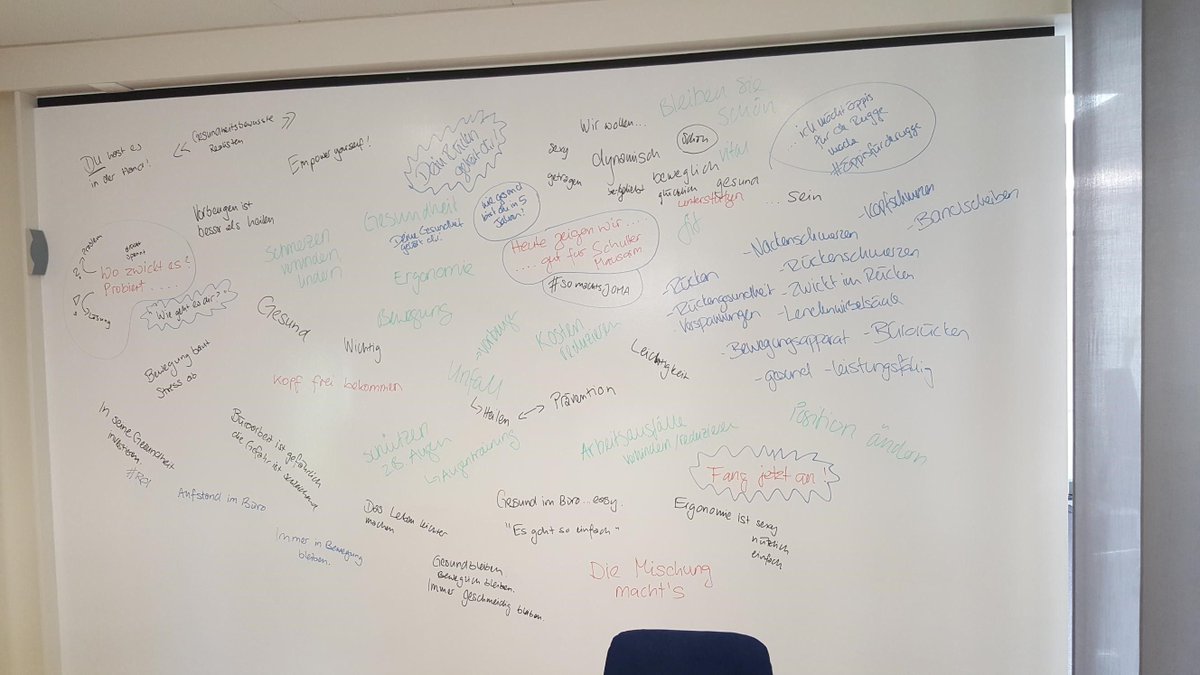 DU hast es
in der Hand!
Gesundheitsbewusste
Realisten
Empower yourself!
Dein Rücken
gehört dir!
Wir wollen...
sexy
getragen
dynamisch
schön
beweglich
glücklich
gesund
unterstützen
vital
... sein
fit
Bleiben Sie
schön
...ich möcht öppis
für de Rugge
mache
#öppisfürderugge
Vorbeugen ist
besser als heilen
Schmerzen
vermindern
lindern
Gesundheit
Deine Gesundheit
gehört dir.
Wie gesund
bist du in 5
Jahren?
Ergonomie
Bewegung
Heute zeigen wir....
.... gut für Schulter
Mausarm
#somachtsJOMA
Problem
Wo zwickt es?
Probiert.....
Lösung
Wie geht es dir?
Gesund
Wichtig
Kopf frei bekommen
Bewegung baut
Stress ab
-Kopfschmerzen
-Bandscheiben
-Nackenschmerzen
-Rückenschmerzen
-Rücken
-Zwickt im Rücken
-Rückengesundheit
-Lendenwirbelsäule
-Verspannungen
-Bewegungsapparat
-Bürorücken
-gesund
-leistungsfähig
Kosten
reduzieren
Leichtigkeit
Unfall
Heilen
Prävention
schützen
z.B. Augen
Augentraining
Arbeitsausfälle
vermindern/reduzieren
Position ändern
Fang jetzt an!
In seine Gesundheit
investieren.
Büroarbeit ist gefährlich
die Gefahr ist schleichend
Aufstand im Büro
Immer in Bewegung
bleiben.
Das Leben leichter
machen
Gesund im Büro...easy.
"Es goht so eifach"
Ergonomie ist sexy
nützlich
einfach
Gesund bleiben.
Beweglich bleiben.
Immer geschmeidig bleiben.
Die Mischung
macht's